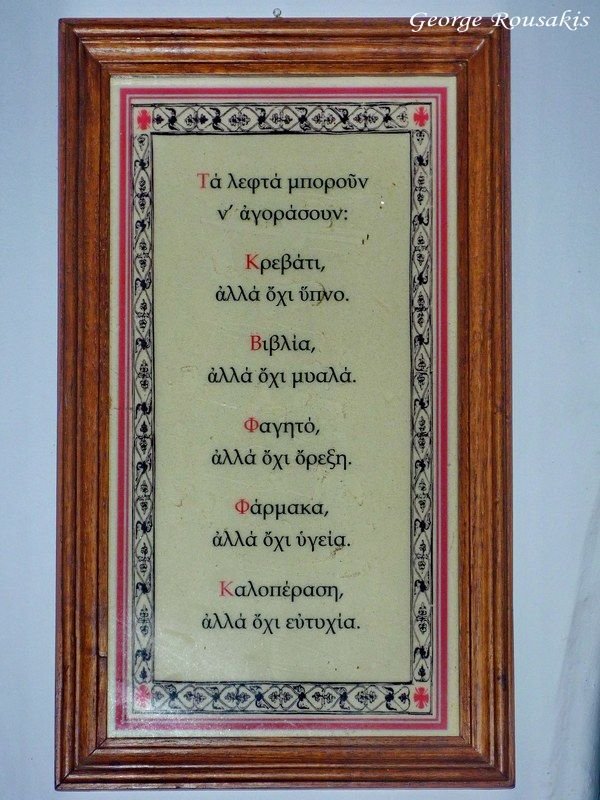 George Rousakis
Τά λεφτά μποροῦν
ν’ ἀγοράσουν:
Κρεβάτι,
ἀλλά ὄχι ὕπνο.
Βιβλία,
ἀλλά ὄχι μυαλά.
Φαγητό,
ἀλλά ὄχι ὄρεξη.
Φάρμακα,
ἀλλά ὄχι ὑγεία.
Καλοπέραση,
ἀλλά ὄχι εὐτυχία.